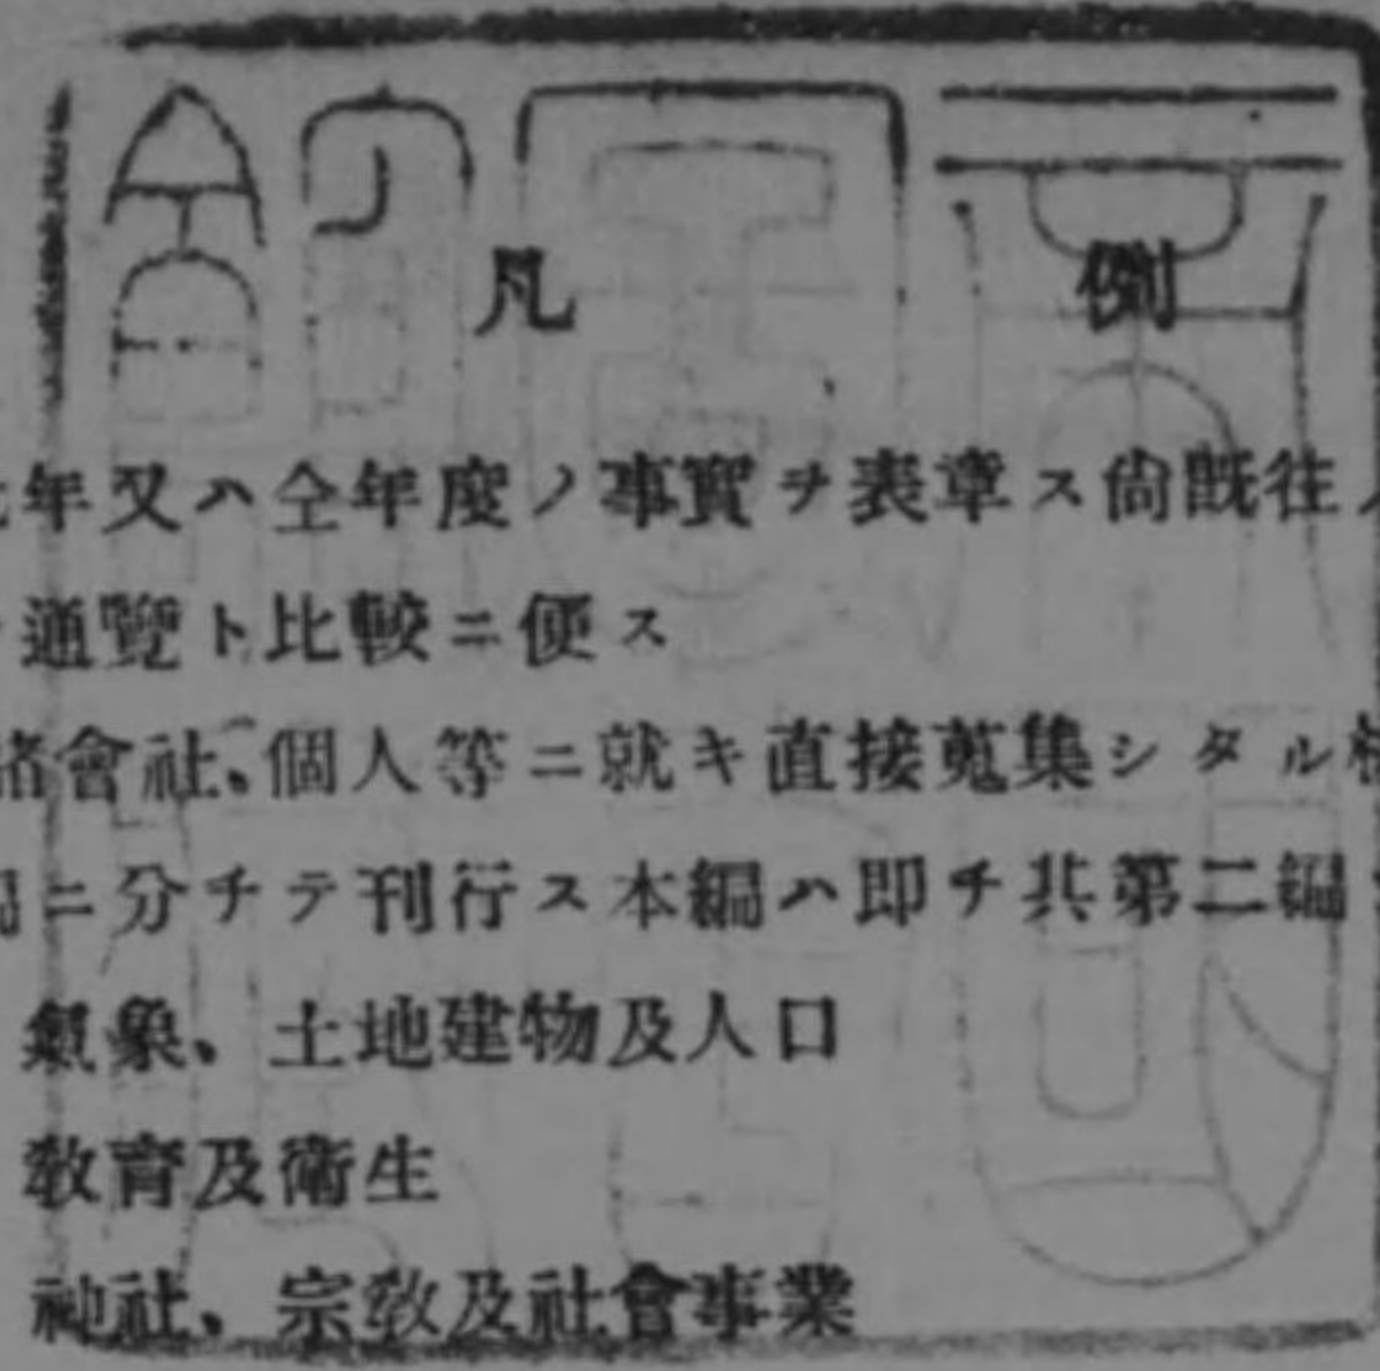 凡例
年又ハ仝年度ノ事實ヲ表章ス尙既往ノ
通覽ト比較ニ便ス
諸會社、個人等ニ就キ直接蒐集シタル材
編ニ分チテ刊行ス本編ハ即チ其第二編
氣象、土地建物及人口
敎育及衞生
神社、宗敎及社會事業